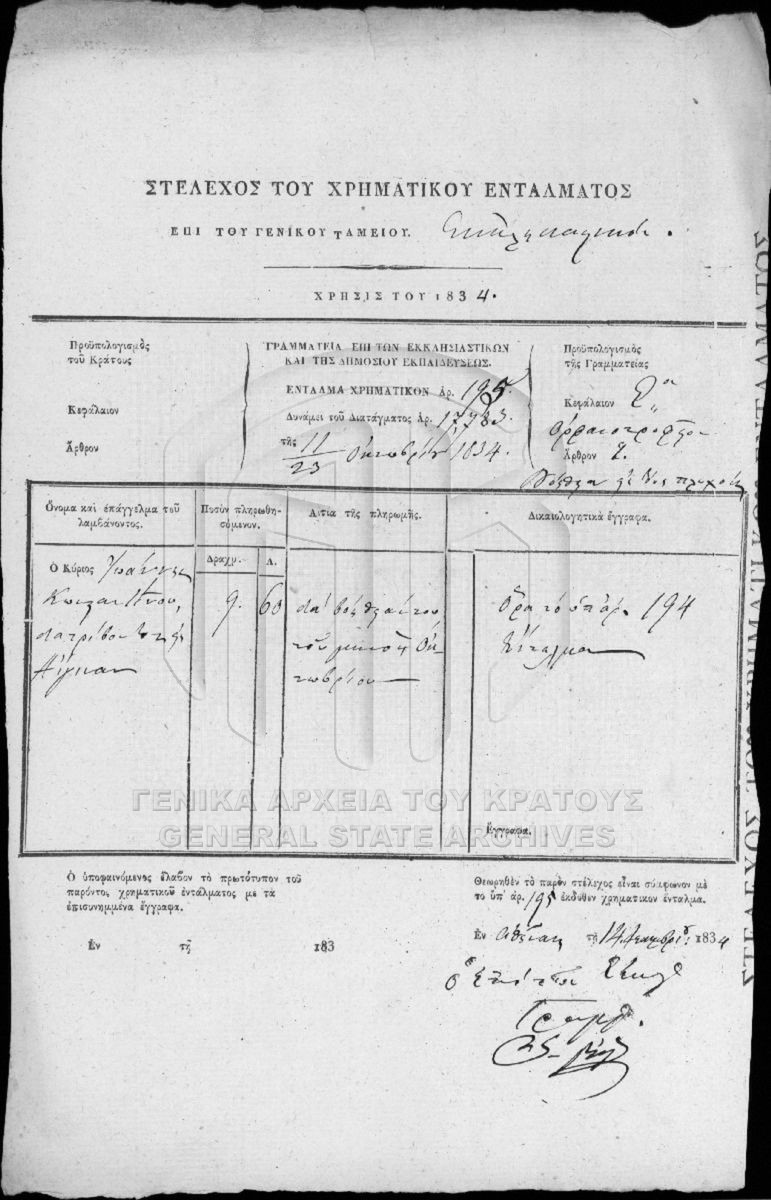 ΣΤΕΛΕΧΟΣ ΤΟΥ ΧΡΗΜΑΤΙΚΟΥ ΕΝΤΑΛΜΑΤΟΣ
ΕΠΙ ΤΟΥ ΓΕΝΙΚΟΥ ΤΑΜΕΙΟΥ.
ΧΡΗΣΙΣ ΤΟΥ 1834.
Προϋπολογισμὸς
τοῦ Κράτους
Κεφάλαιον
Ἄρθρον
ΓΡΑΜΜΑΤΕΙΑ ΕΠΙ ΤΩΝ ΕΚΚΛΗΣΙΑΣΤΙΚΩΝ
ΚΑΙ ΤΗΣ ΔΗΜΟΣΙΟΥ ΕΚΠΑΙΔΕΥΣΕΩΣ.
ΕΝΤΑΛΜΑ ΧΡΗΜΑΤΙΚΟΝ ἀρ. 195.
Δυνάμει τοῦ Διατάγματος ἀρ. 17,783.
τῆς 11/23 Ὀκτωβρίου 1834.
Προϋπολογισμὸς
τῆς Γραμματείας
Κεφάλαιον
Ἄρθρον
Ὄνομα καὶ ἐπάγγελμα τοῦ
λαμβάνοντος.
Ποσὸν πληρωθη-
σόμενον.
Αἰτία τῆς πληρωμῆς.
Δικαιολογητικὰ ἔγγραφα.
Δραχμ.
Λ.
Ὁ Κύριος Ἰωάννης
Κωνσταντίνου,
διατρίβων εἰς
Αἴγιναν
9.
60
διὰ βοήθειάν του
τοῦ μηνὸς Ὀκ-
τωβρίου
Ὅρα τὸ ὑπ' ἀρ. 194
ἔνταλμα
Ἔγγραφα.
ΓΕΝΙΚΑ ΑΡΧΕΙΑ ΤΟΥ ΚΡΑΤΟΥΣ
GENERAL STATE ARCHIVES
Ὁ ὑποφαινόμενος ἔλαβον τὸ πρωτότυπον τοῦ
παρόντος χρηματικοῦ ἐντάλματος μὲ τὰ
ἐπισυνημμένα ἔγγραφα.
Ἐν τῇ 183
Θεωρηθὲν τὸ παρὸν στέλεχος εἶναι σύμφωνον μὲ
τὸ ὑπ' ἀρ. 195 ἐκδοθὲν χρηματικὸν ἔνταλμα.
Ἐν Ἀθήναις τῇ 14 1834
ΣΤΕΛΕΧΟΣ ΤΟΥ ΧΡΗΜΑΤΙΚΟΥ ΕΝΤΑΛΜΑΤΟΣ